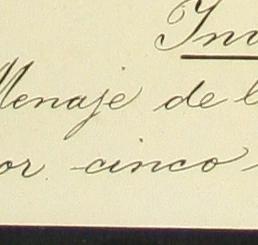 Inv
Menaje de l
or cinco